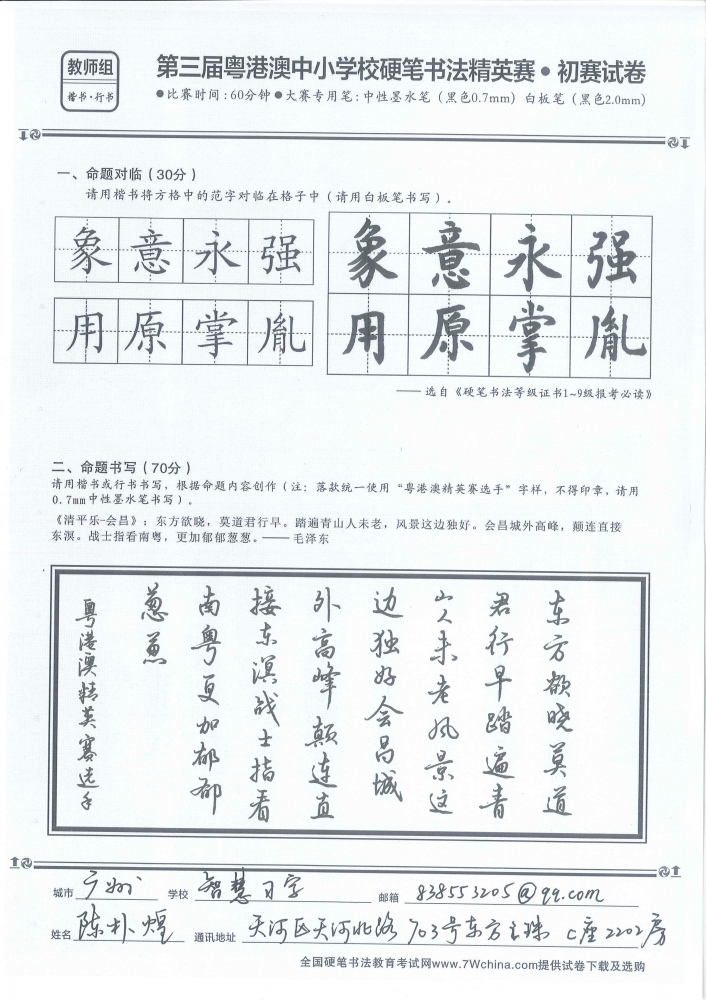 教师组
楷书·行书
第三届粤港澳中小学校硬笔书法精英赛·初赛试卷
●比赛时间:60分钟●大赛专用笔:中性墨水笔(黑色0.7mm)白板笔(黑色2.0mm)
一、命题对临(30分)
请用楷书将方格中的范字对临在格子中(请用白板笔书写)。
象意永强
用原掌胤
象意永强
用原掌胤
——选自《硬笔书法等级证书1~9级报考必读》
二、命题书写(70分)
请用楷书或行书书写,根据命题内容创作(注:落款统一使用“粤港澳精英赛选手”字样,不得印章,请用
0.7mm中性墨水笔书写)。
《清平乐-会昌》:东方欲晓,莫道君行早。踏遍青山人未老,风景这边独好。会昌城外高峰,颠连直接
东溟。战士指看南粤,更加郁郁葱葱。——毛泽东
东方欲晓莫道
君行早踏遍青
山人未老风景这
边独好会昌城
外高峰颠连直
接东溟战士指看
南粤更加郁郁
葱葱
粤港澳精英赛选手
城市 广州 学校 智慧习字 邮箱 838553205@qq.com
姓名 陈朴煌 通讯地址 天河区天河北路703号东方之珠 C座2202房
全国硬笔书法教育考试网www.7Wchina.com提供试卷下载及选购